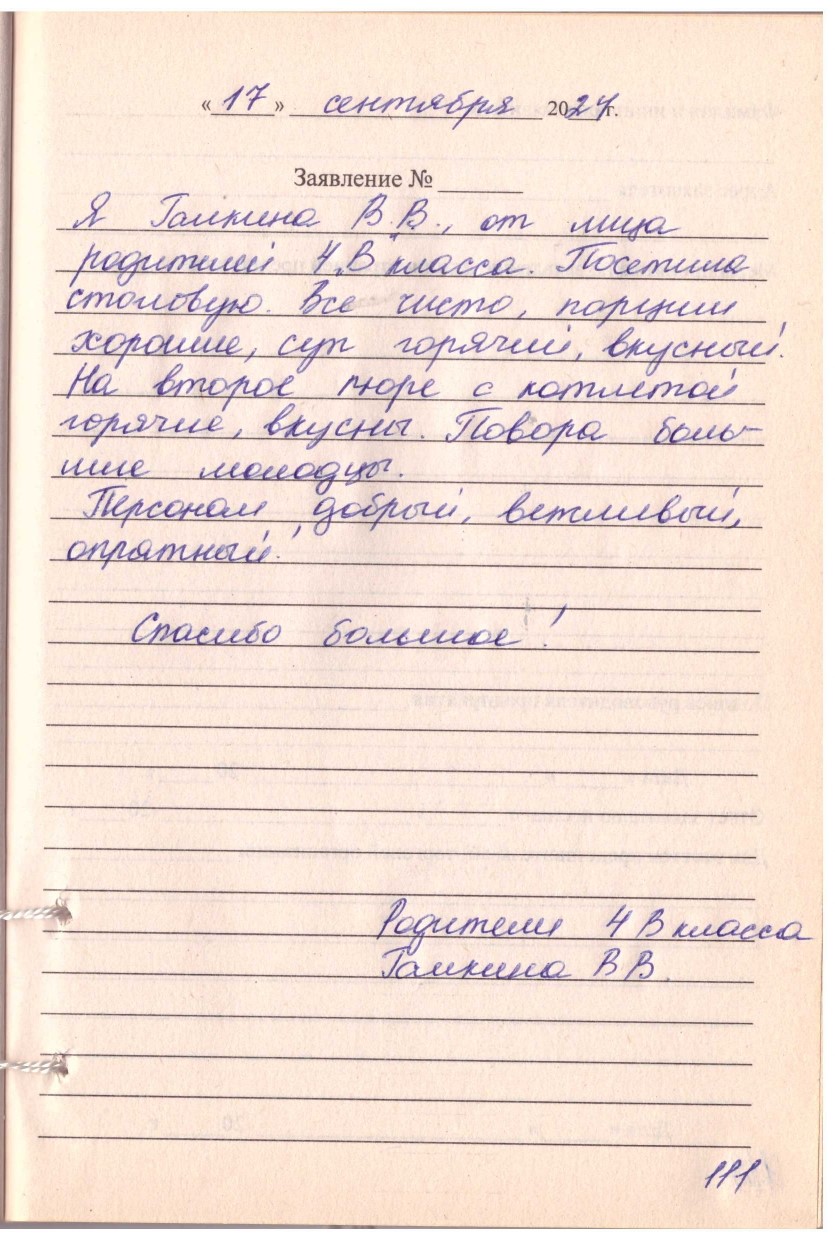 « 17 » сентября 2024г.
Заявление № ______
Я Галкина В.В., от лица
родителей 4 "В" класса. Посетила
столовую. Все чисто, порции
хорошие, суп горячий, вкусный.
На второе пюре с котлетой
горячие, вкусны. Повора боль-
шие молодцы.
Персонал добрый, вежливый,
опрятный!
Спасибо большое!
Родители 4 В класса
Галкина В В.
111